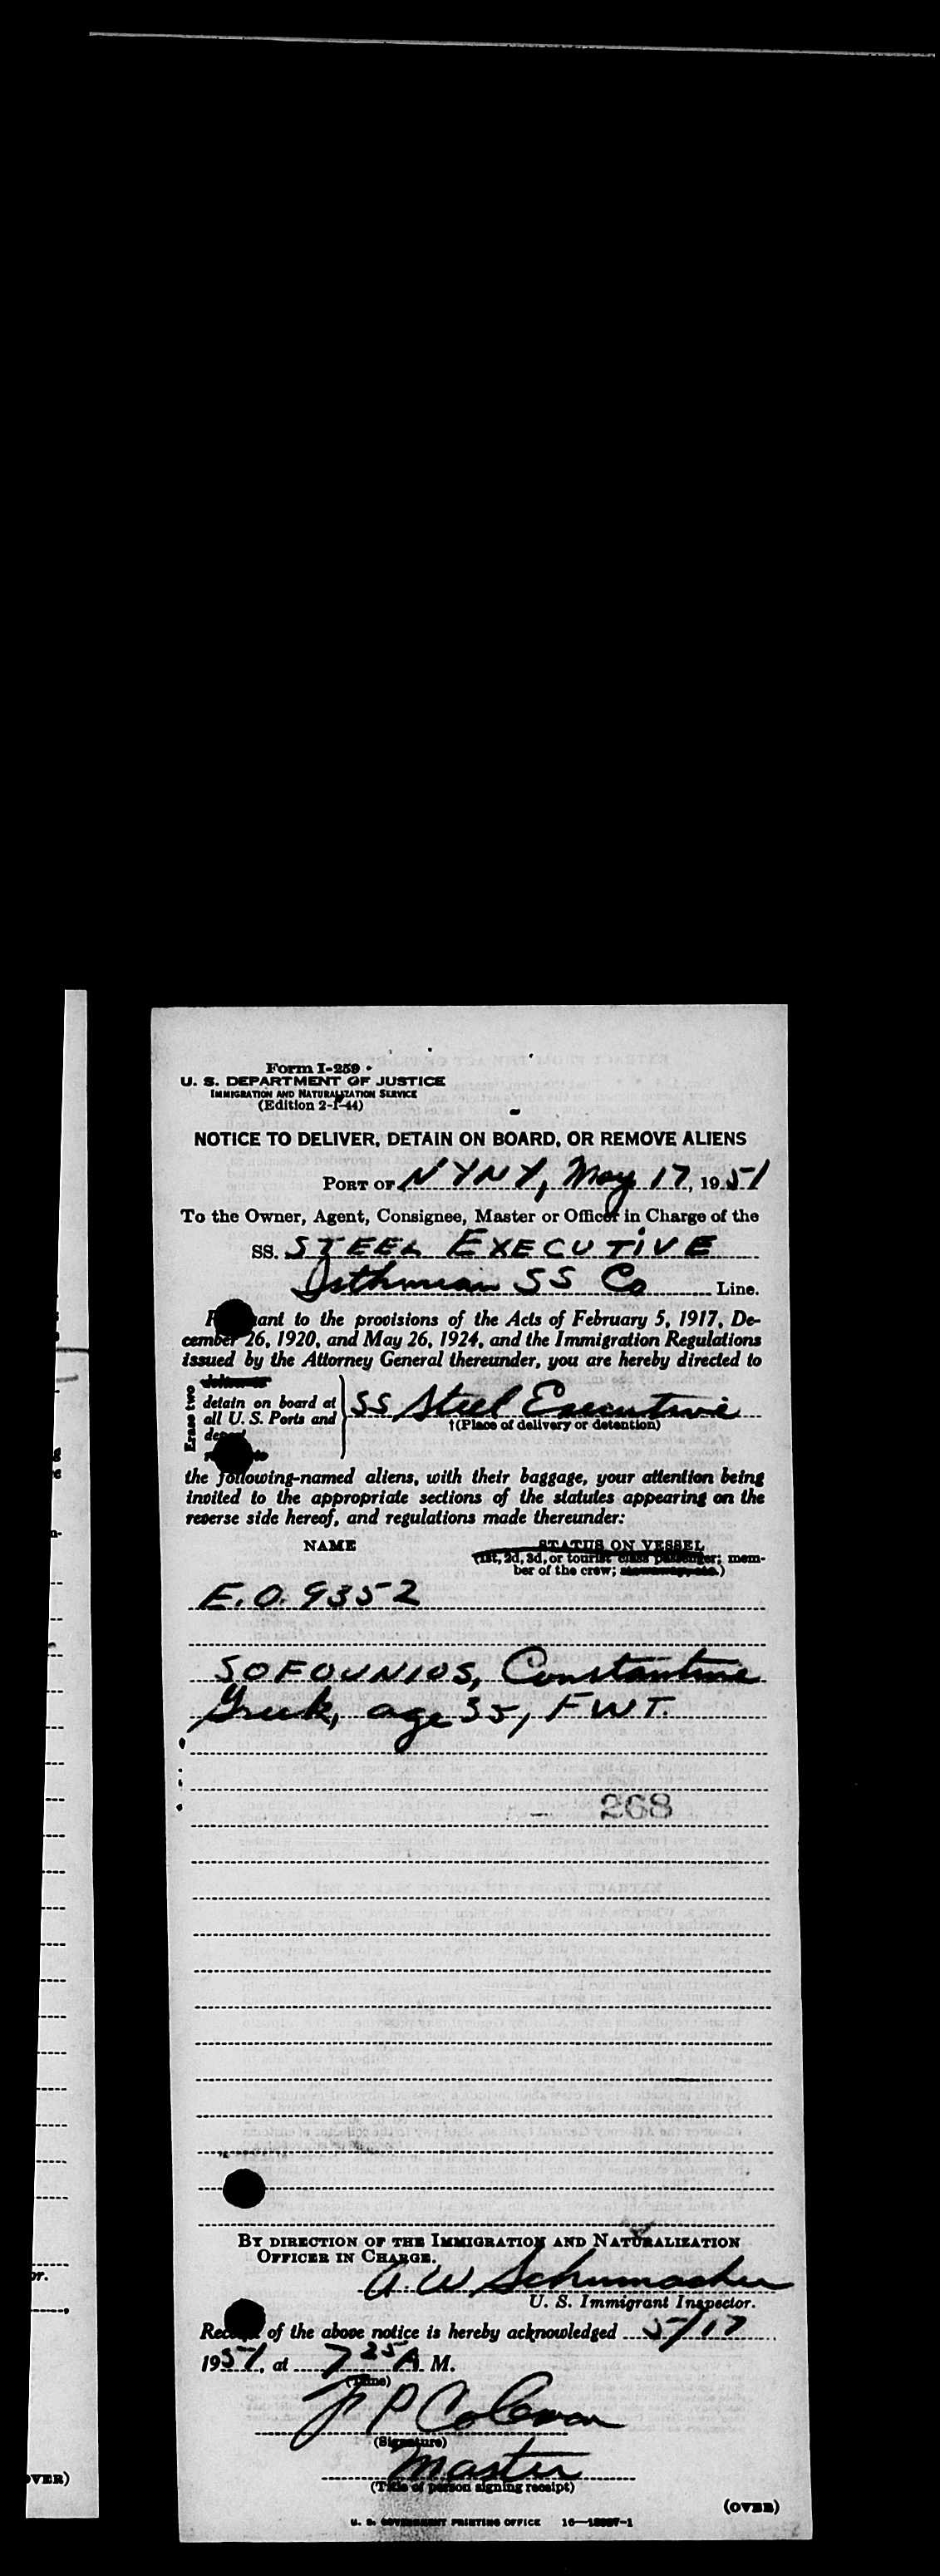 Form I-259
U. S. DEPARTMENT OF JUSTICE
IMMIGRATION AND NATURALIZATION SERVICE
(Edition 2-1-44)
NOTICE TO DELIVER, DETAIN ON BOARD, OR REMOVE ALIENS
PORT OF N Y N Y, May 17, 1951
To the Owner, Agent, Consignee, Master or Officer in Charge of the
SS. STEEL EXECUTIVE
Isthmian SS Co Line.
ant to the provisions of the Acts of February 5, 1917, De-
cember 26, 1920, and May 26, 1924, and the Immigration Regulations
issued by the Attorney General thereunder, you are hereby directed to
Erase two
detain on board at
all U. S. Ports and
SS Steel Executive
†(Place of delivery or detention)
the following-named aliens, with their baggage, your attention being
invited to the appropriate sections of the statutes appearing on the
reverse side hereof, and regulations made thereunder:
NAME STATUS ON VESSEL
(1st, 2d, 3d, or tourist class passenger; mem-
ber of the crew;
E.O. 9352
SOFOUNIOS, Constantine
Greek, age 35, FWT.
268
BY DIRECTION OF THE IMMIGRATION AND NATURALIZATION
OFFICER IN CHARGE.
A. W. Schumacher
U. S. Immigrant Inspector.
of the above notice is hereby acknowledged 5/17
1951, at 7 25 A M.
(Time)
J P Coleman
(Signature)
Master
(Title of person signing receipt)
(OVER)
U. S. GOVERNMENT PRINTING OFFICE
or.
OVER)